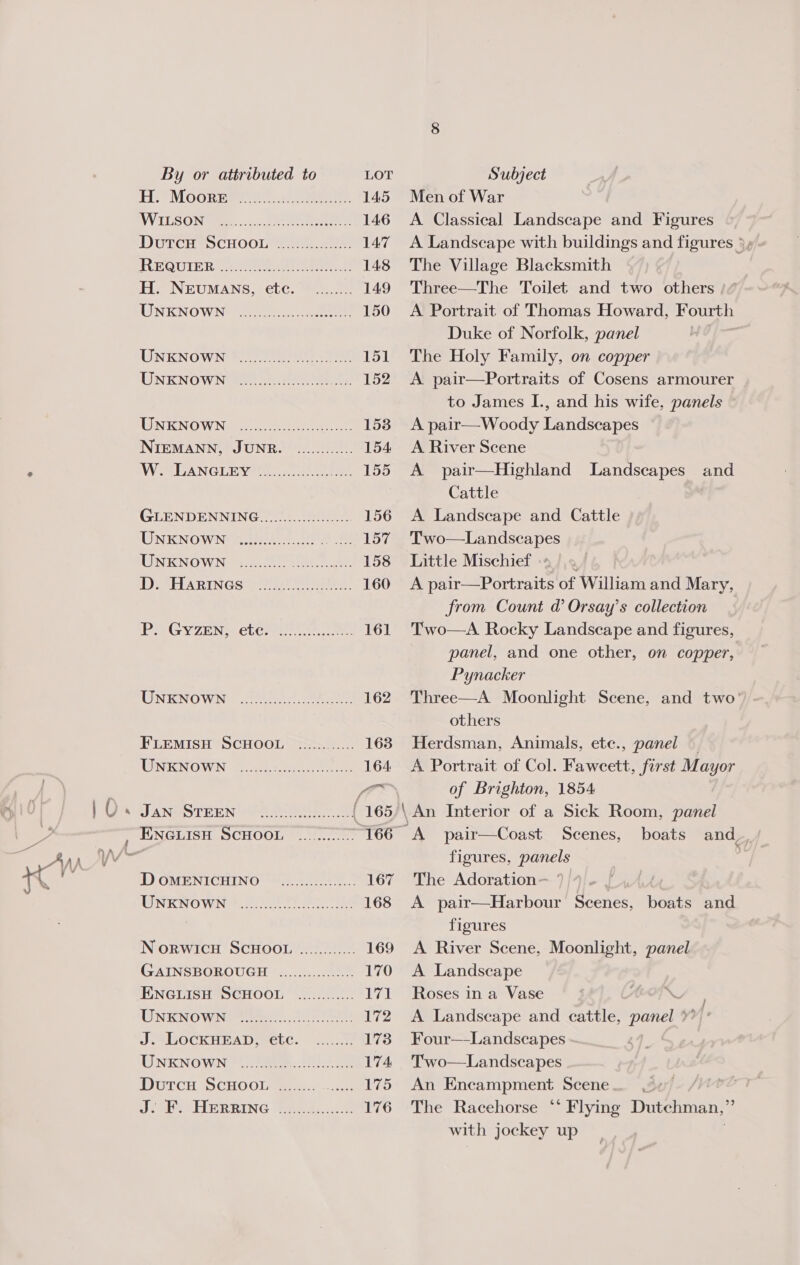 8
By or attributed to LOT Subject
H. MOORE ........................ 145 Men of War
WILSON ........................ 146 A Classical Landscape and Figures
DUTCH SCHOOL ............... 147 A Landscape with buildings and figures
REQUIER ........................ 148 The Village Blacksmith
H. NEUMANS, etc. ......... 149 Three—The Toilet and two others
UNKNOWN ..................... 150 A Portrait of Thomas Howard, Fourth
Duke of Norfolk, panel
UNKNOWN ..................... 151 The Holy Family, on copper
UNKNOWN ..................... 152 A pair—Portraits of Cosens armourer
to James I., and his wife, panels
UNKNOWN ..................... 153 A pair—Woody Landscapes
NIEMANN, JUNR. ............ 154 A River Scene
W. LANGLEY .................. 155 A pair—Highland Landscapes and
Cattle
GLENDENNING.................. 156 A Landscape and Cattle
UNKNOWN ..................... 157 Two—Landscapes
UNKNOWN ..................... 158 Little Mischief
D. HARINGS .................. 160 A pair—Portraits of William and Mary,
from Count d'Orsay's collection
P. GYZEN, etc. ............... 161 Two—A Rocky Landscape and figures,
panel, and one other, on copper,
Pynacker
UNKNOWN ..................... 162 Three—A Moonlight Scene, and two
others
FLEMISH SCHOOL ............ 163 Herdsman, Animals, etc., panel
UNKNOWN ..................... 164 A Portrait of Col. Fawcett, first Mayor
of Brighton, 1854
JAN STEEN ..................... 165 An Interior of a Sick Room, panel
ENGLISH SCHOOL ............ 166 A pair—Coast Scenes, boats and
figures, panels
DOMENICHINO ............... 167 The Adoration
UNKNOWN ..................... 168 A pair—Harbour Scenes, boats and
figures
NORWICH SCHOOL ............ 169 A River Scene, Moonlight, panel
GAINSBOROUGH ............... 170 A Landscape
ENGLISH SCHOOL ............ 171 Roses in a Vase
UNKNOWN ..................... 172 A Landscape and cattle, panel
J. LOCKHEAD, etc. ......... 173 Four—Landscapes
UNKNOWN ..................... 174 Two—Landscapes
DUTCH SCHOOL ............... 175 An Encampment Scene
J. F. HERRING ............... 176 The Racehorse “Flying Dutchman,”
with jockey up